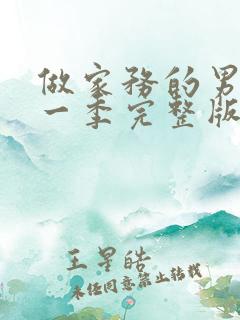 做家务的男
一季完整版
王星皓
未经同意禁止转载